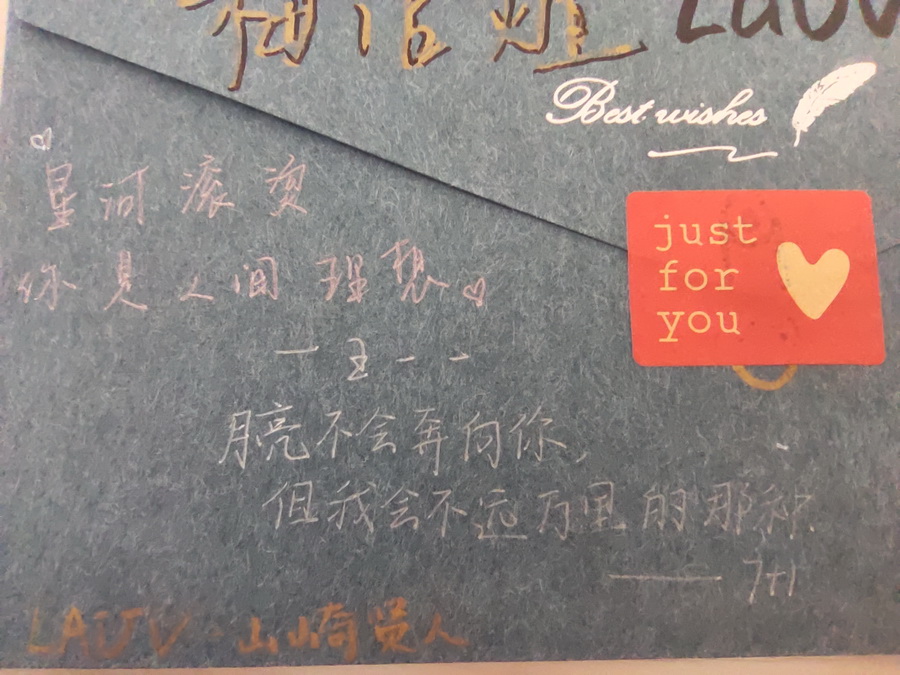 Best wishes
星河滚烫
你是人间理想
just
for
you
月亮不会奔向你,
但我会不远万里的那种.
—— 7+1
LAUV · 山崎贤人